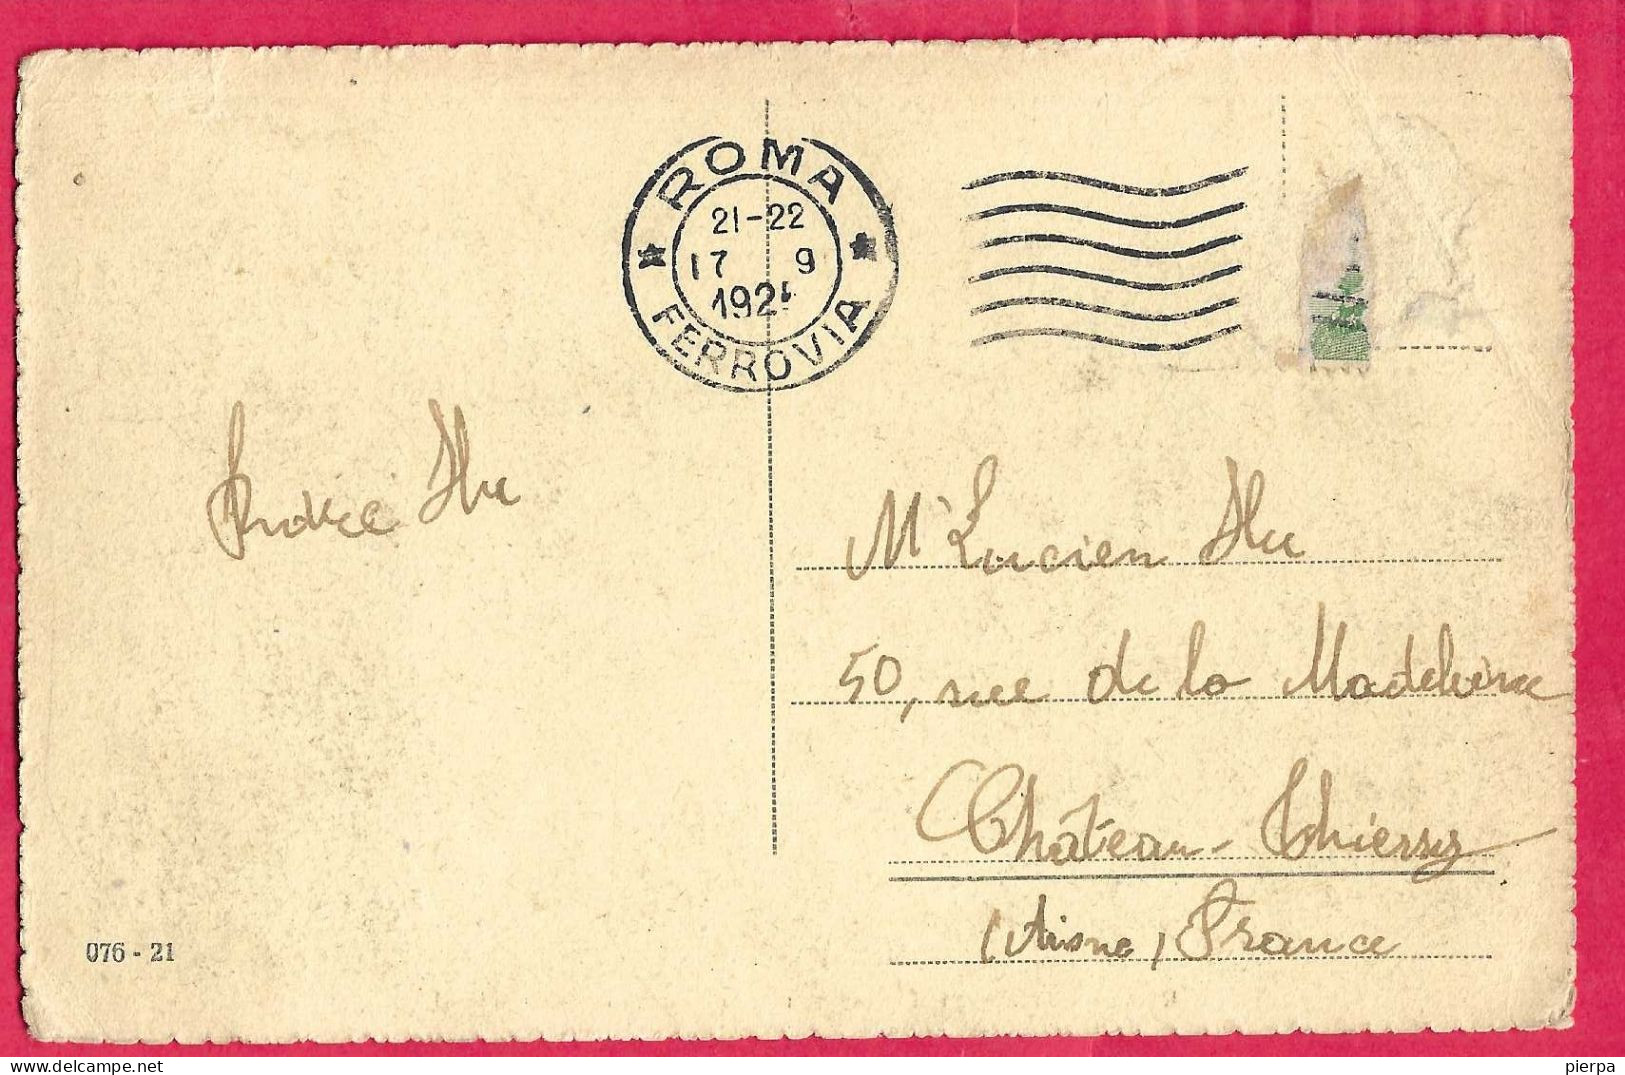 ROMA
21-22
17 9
192
FERROVIA
Hu
Mr Lucien Hu
50, rue de la Madeleine
Château-Thierry
(Aisne) France
076 - 21
pierpa